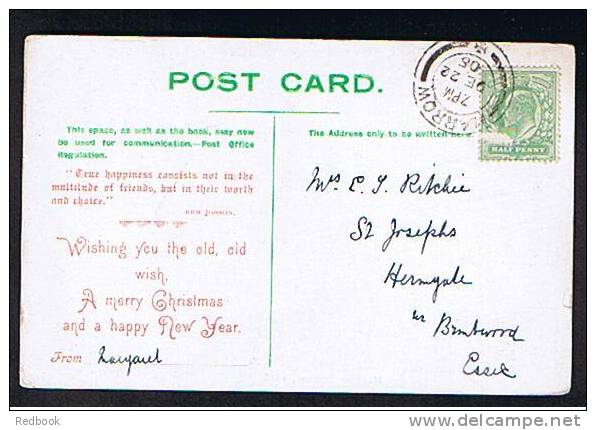 POST CARD.
This space, as well as the back, may now
be used for communication.—Post Office
Regulation.
"True happiness consists not in the
multitude of friends, but in their worth
and choice."
BEN JONSON.
Wishing you the old, old
wish,
A merry Christmas
and a happy New Year.
From
The Address only to be written here.
HARROW
7 PM
DE 22
05
HALF PENNY
Mrs E. J. Ritchie
St Josephs
Brentwood
Essex
Redbook
delcampe.net